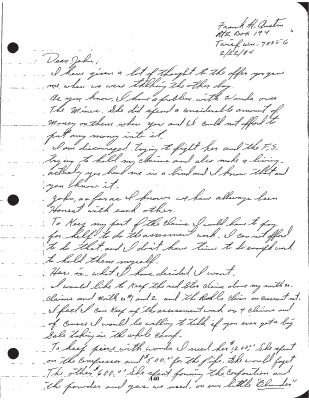 Frank H. Austin
Rte Box 194
Twisp Wn. 98856
2/22/84
Dear John,
I have given a lot of thought to the offer you gave
me when we were talking the other day.
As you know, I have a problem with Wanda over
the Mines. She did spend a considerable amount of
Money on them when you and I could not afford to
put any money into it.
I am discouraged trying to fight her and the F.S.
trying to hold my claims and also make a living.
actually you have me in a bind and I know that and
you know it.
John, as far as I know we have always been
Honest with each other.
To Keep my part of the claims I would have to pay
for help to do the assessment work. I can not afford
to do that and I don't have time to do enough work
to hold them myself.
Here is what I have decided I want.
I would like to Keep the Red Star claim along my
claims and North #1 and 2 and the claim on
I feel I can Keep up the assessment work on 4 claims and
of Course I would be willing to talk if you ever get a big
Sale taking in the whole Camp.
To keep peace with Wanda I need her She spent
on the Compressor and $500.00 for the pipe. She would forget
The other $600.00 She spent forming the Corporation and
the powder and gas we used, on our little "Blunder"